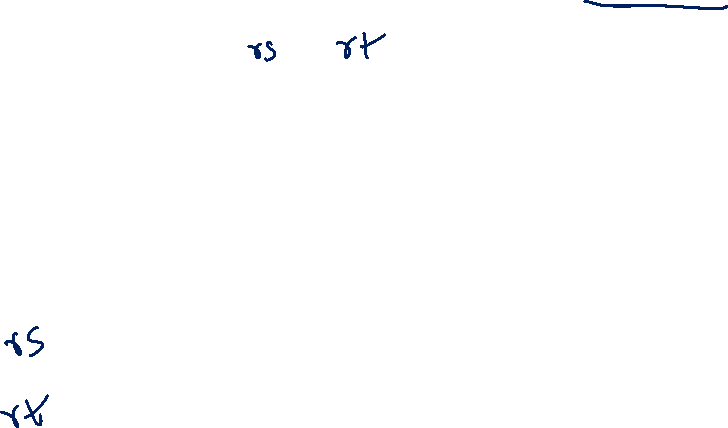 rs rt
rs
rt